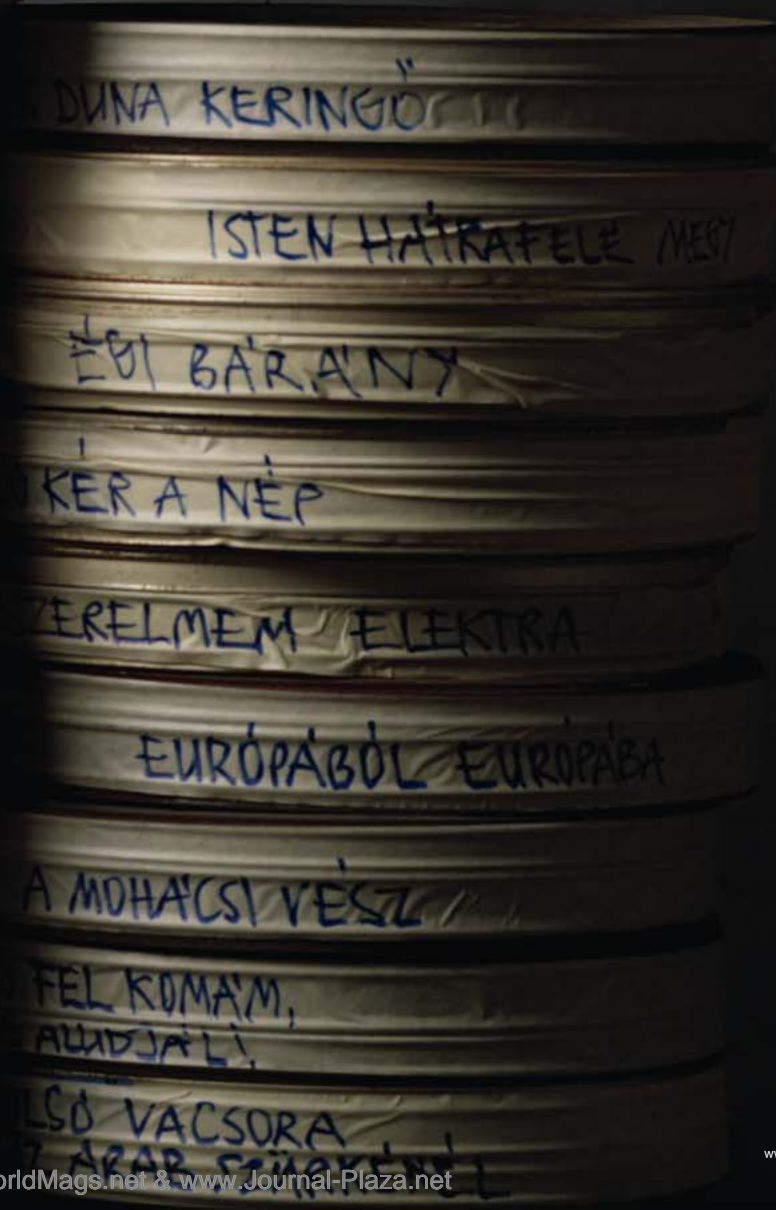 DUNA KERINGŐ
ISTEN HÁTRAFELÉ MEGY
ÉGI BÁRÁNY
KÉR A NÉP
ZERELMEM ELEKTRA
EURÓPÁBÓL EURÓPÁBA
A MOHÁCSI VÉSZ
FEL KOMÁM,
ALUDJÁL!
LSÓ VACSORA
ARAB SZÜRKÉNÉL
orldMags.net & www.Journal-Plaza.net